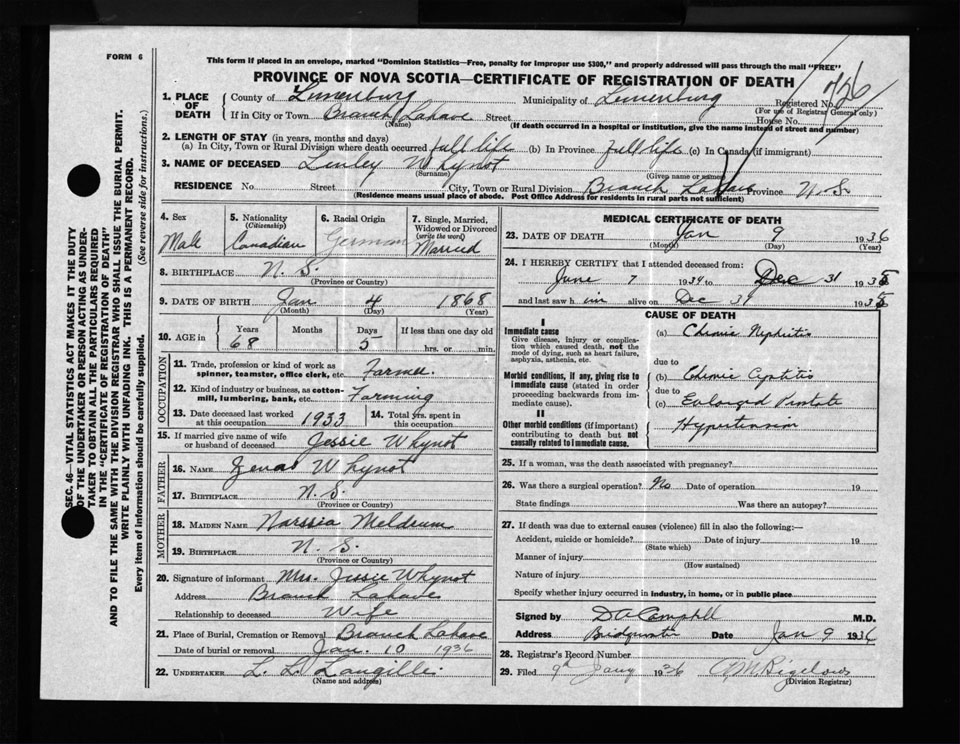 FORM 6
This form if placed in an envelope, marked "Dominion Statistics—Free, penalty for improper use $300," and properly addressed will pass through the mail "FREE"
PROVINCE OF NOVA SCOTIA—CERTIFICATE OF REGISTRATION OF DEATH
1. PLACE OF DEATH
County of Lunenburg Municipality of Lunenburg Registered No. 726
(For use of Registrar General only)
If in City or Town Branch Lahave Street House No.
(Name) (If death occurred in a hospital or institution, give the name instead of street and number)
2. LENGTH OF STAY (in years, months and days)
(a) In City, Town or Rural Division where death occurred full life (b) In Province full life (c) In Canada (if immigrant)
3. NAME OF DECEASED Linley Whynot
(Surname) (Given name or names)
RESIDENCE No. Street City, Town or Rural Division Branch Lahave Province N. S.
(Residence means usual place of abode. Post Office Address for residents in rural parts not sufficient)
4. Sex Male
5. Nationality (Citizenship) Canadian
6. Racial Origin German
7. Single, Married, Widowed or Divorced (write the word) Married
8. BIRTHPLACE N. S.
(Province or Country)
9. DATE OF BIRTH Jan 4 1868
(Month) (Day) (Year)
10. AGE in Years 68 Months Days 5 If less than one day old hrs. or min.
OCCUPATION
11. Trade, profession or kind of work as spinner, teamster, office clerk, etc. Farmer
12. Kind of industry or business, as cotton-mill, lumbering, bank, etc. Farming
13. Date deceased last worked at this occupation 1933
14. Total yrs. spent in this occupation
15. If married give name of wife or husband of deceased Jessie Whynot
FATHER
16. NAME Zenas Whynot
17. BIRTHPLACE N. S.
(Province or Country)
MOTHER
18. MAIDEN NAME Narssia Meldrum
19. BIRTHPLACE N. S.
(Province or Country)
20. Signature of informant Mrs. Jessie Whynot
Address Branch Lahave
Relationship to deceased Wife
21. Place of Burial, Cremation or Removal Branch Lahave
Date of burial or removal Jan. 10 1936
22. UNDERTAKER L. L. Langille
(Name and address)
MEDICAL CERTIFICATE OF DEATH
23. DATE OF DEATH Jan 9 1936
(Month) (Day) (Year)
24. I HEREBY CERTIFY that I attended deceased from:
June 7 1934 to Dec 31 1935
and last saw him alive on Dec 31 1935
CAUSE OF DEATH
I
Immediate cause
Give disease, injury or complication which caused death, not the mode of dying, such as heart failure, asphyxia, asthenia, etc.
(a) Chronic Nephritis
due to
Morbid conditions, if any, giving rise to immediate cause (stated in order proceeding backwards from immediate cause).
(b) Chronic Cystitis
due to
(c) Enlarged Prostate
II
Other morbid conditions (if important) contributing to death but not causally related to immediate cause.
Hypertension
25. If a woman, was the death associated with pregnancy?
26. Was there a surgical operation? No Date of operation 19
State findings Was there an autopsy?
27. If death was due to external causes (violence) fill in also the following:—
Accident, suicide or homicide? Date of injury 19
(State which)
Manner of injury
(How sustained)
Nature of injury
Specify whether injury occurred in industry, in home, or in public place
Signed by D A Campbell M.D.
Address Bridgewater Date Jan 9 1936
28. Registrar's Record Number
29. Filed 9th Jany 1936 Bigelow
(Division Registrar)
SEC. 46—VITAL STATISTICS ACT MAKES IT THE DUTY
OF THE UNDERTAKER OR PERSON ACTING AS UNDER-
TAKER TO OBTAIN ALL THE PARTICULARS REQUIRED
IN THE "CERTIFICATE OF REGISTRATION OF DEATH"
AND TO FILE THE SAME WITH THE DIVISION REGISTRAR WHO SHALL ISSUE THE BURIAL PERMIT.
WRITE PLAINLY WITH UNFADING INK. THIS IS A PERMANENT RECORD.
Every item of information should be carefully supplied. (See reverse side for instructions.)